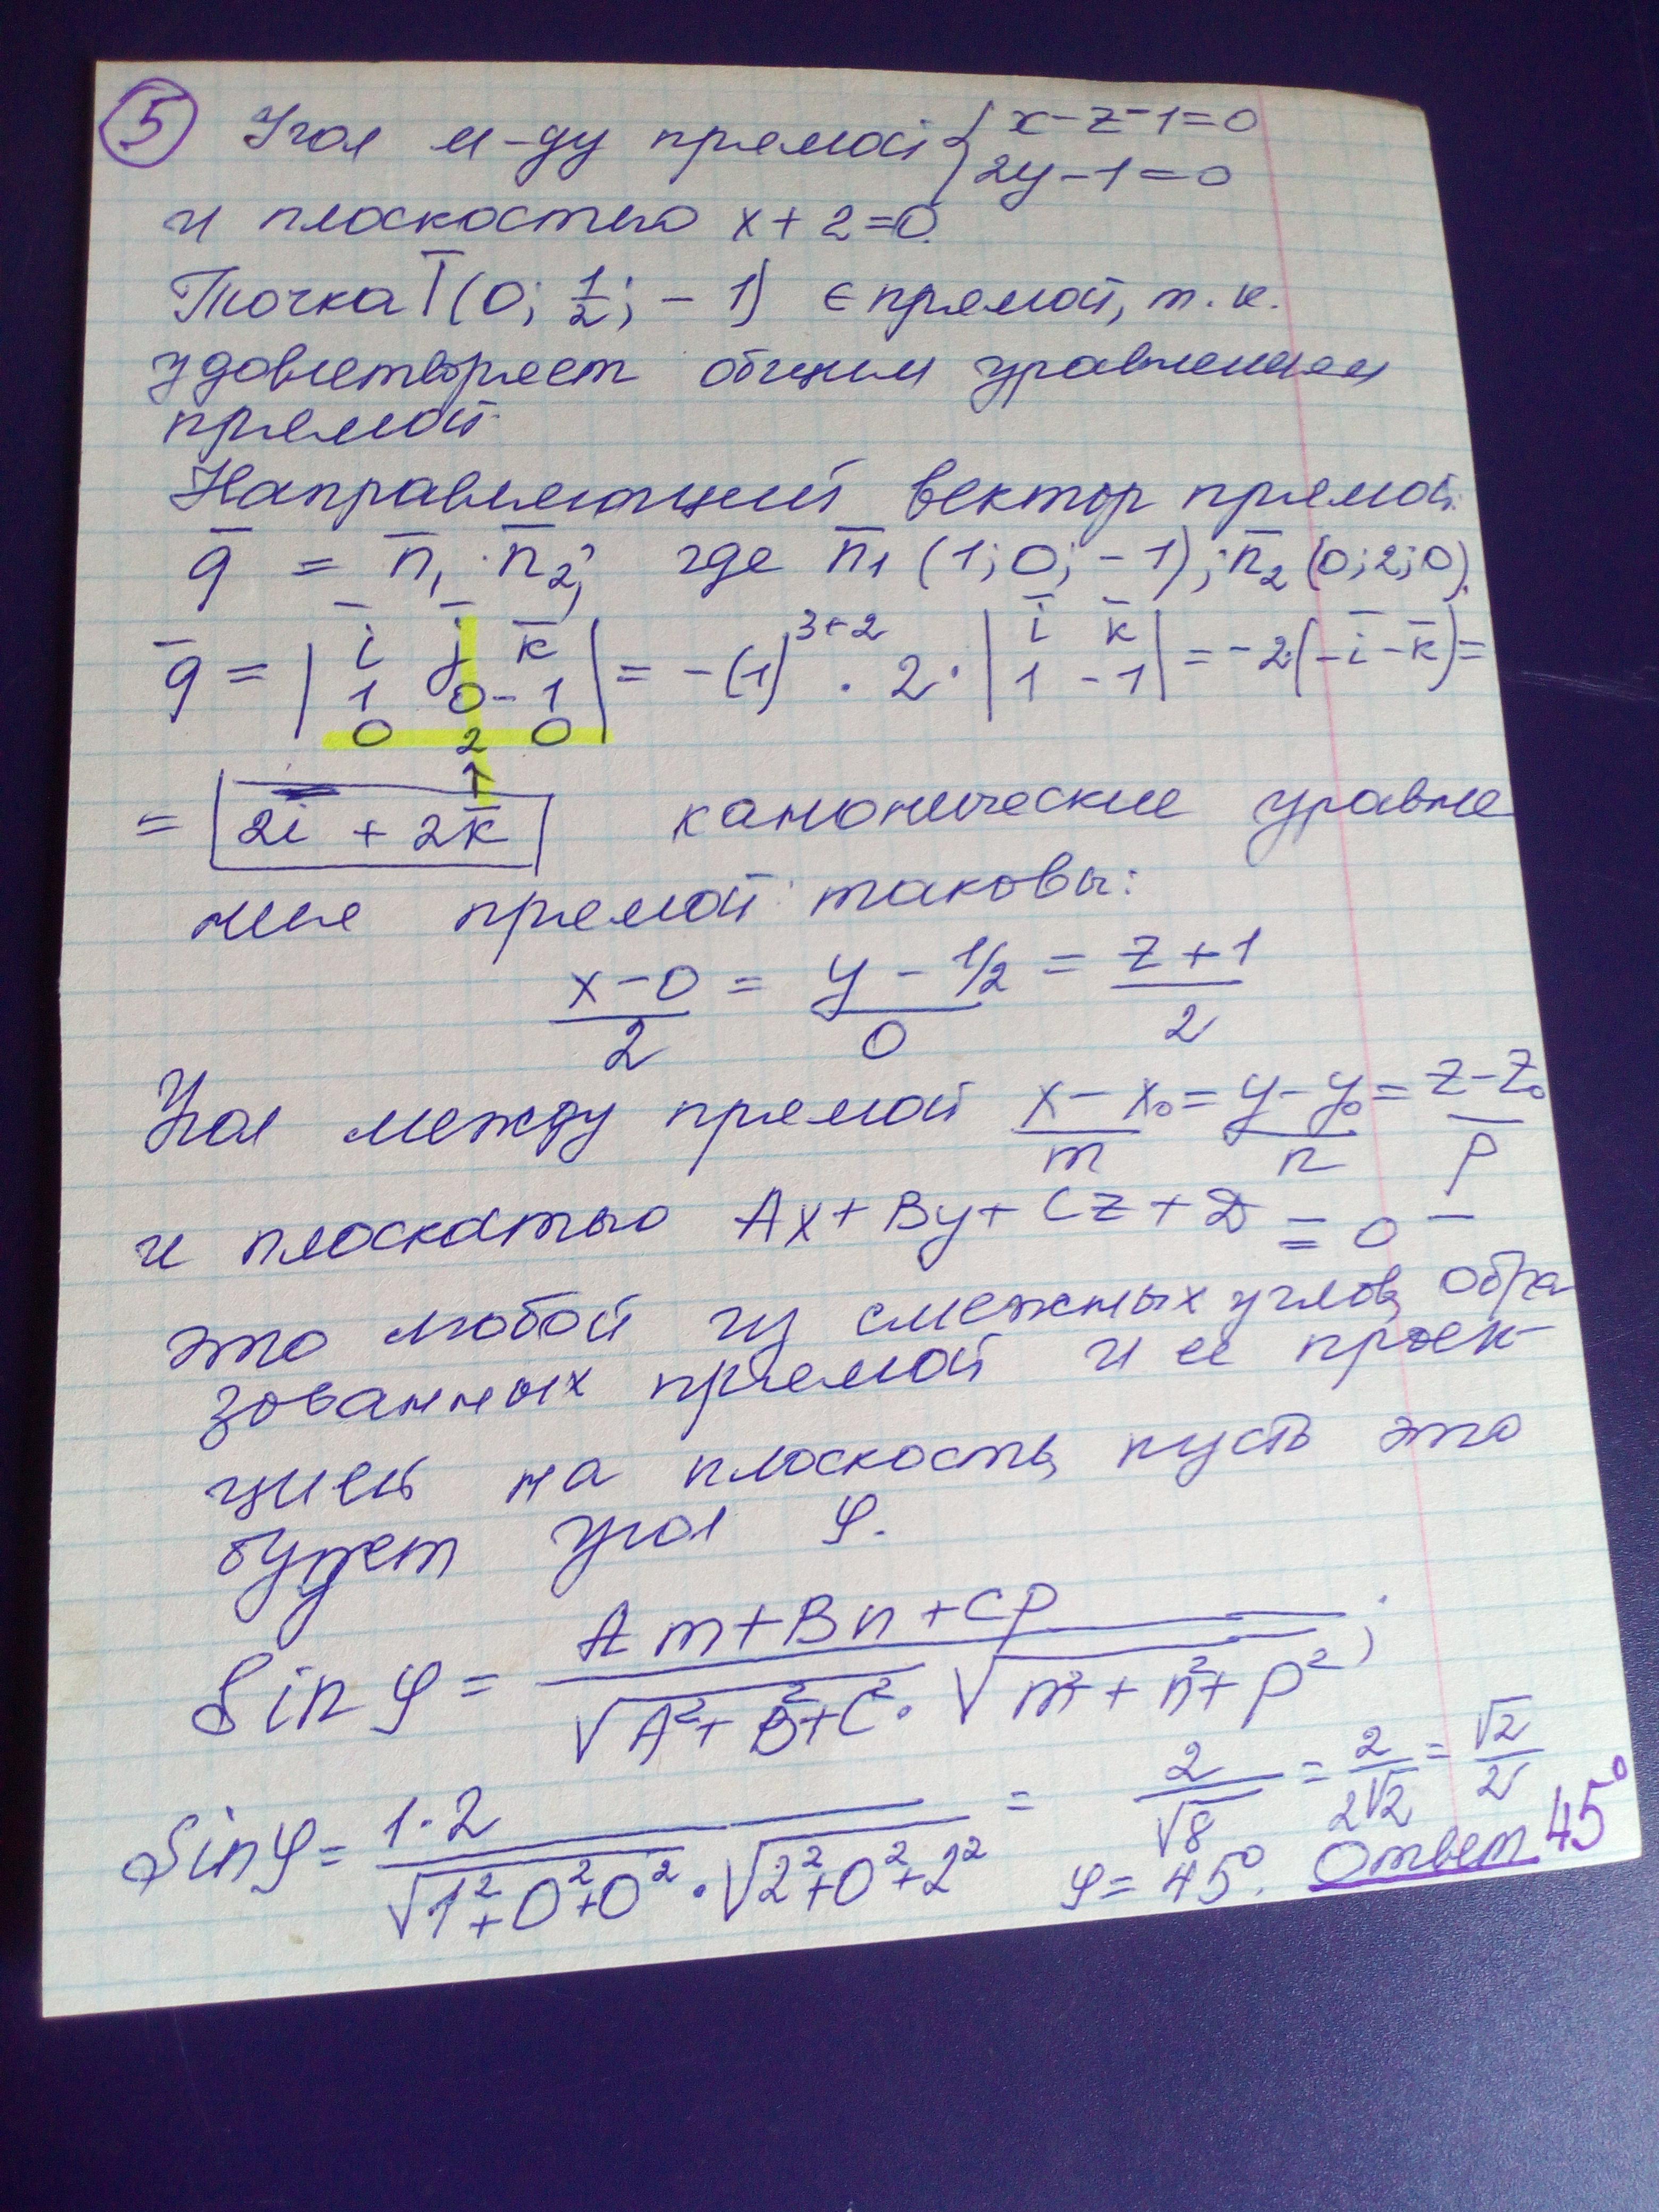 5 Угол м-ду прямой { x-z-1=0
2y-1=0
и плоскостью x+2=0.
Точка T(0; 1/2; -1) ∈ прямой, т.к.
удовлетворяет общим уравнениям
прямой.
Направляющий вектор прямой:
q̄ = n̄₁ · n̄₂; где n̄₁ (1; 0; -1); n̄₂ (0; 2; 0).
q̄ = | ī j̄ k̄ | = -(1)³⁺² · 2 · | ī k̄ | = -2(-ī-k̄) =
| 1 0 -1 | | 1 -1 |
| 0 2 0 |
= 2ī + 2k̄ канонические уравне
ния прямой таковы:
(x-0)/2 = (y-1/2)/0 = (z+1)/2
Угол между прямой (x-x₀)/m = (y-y₀)/n = (z-z₀)/p
и плоскостью Ax+By+Cz+D=0 —
это любой из смежных углов, обра
зованных прямой и её проек-
цией на плоскость, пусть это
будет угол φ.
Sin φ = (Am+Bn+Cp)/(√(A²+B²+C²) · √(m²+n²+p²));
Sin φ = (1·2)/(√(1²+0²+0²) · √(2²+0²+2²)) = 2/√8 = 2/(2√2) = √2/2
φ = 45°. Ответ 45°